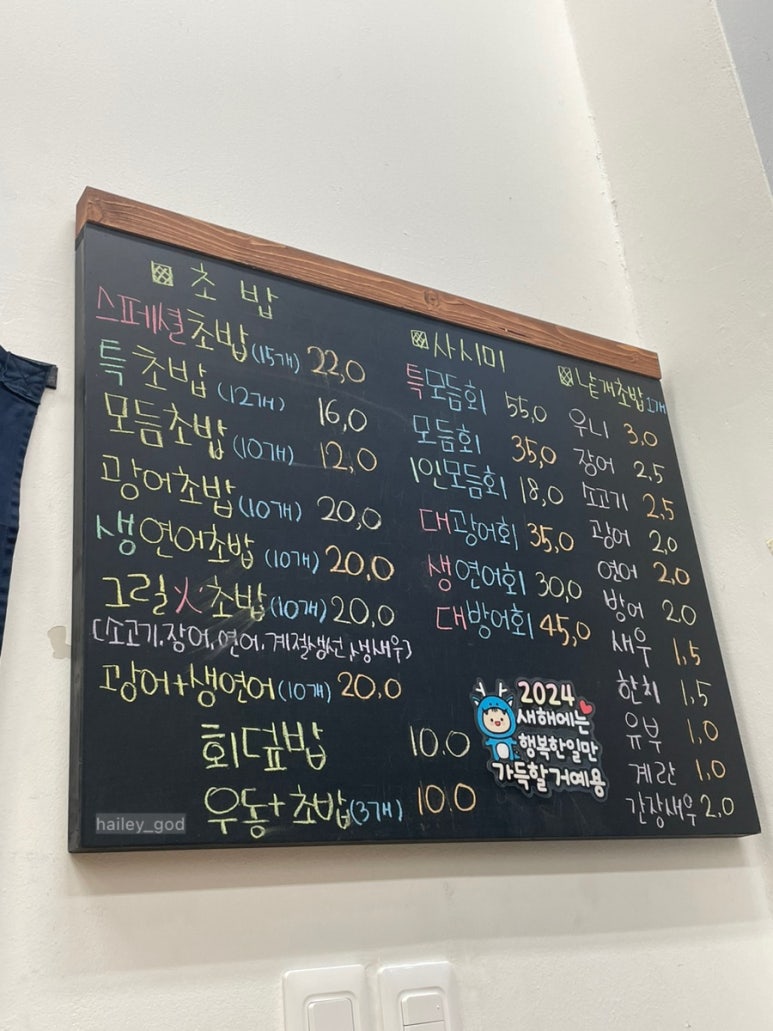 초밥
스페셜초밥(15개) 22,0
특초밥(12개) 16,0
모듬초밥(10개) 12,0
광어초밥(10개) 20,0
생연어초밥(10개) 20,0
그릴火초밥(10개) 20,0
(소고기.장어.연어.계절생선.생새우)
광어+생연어(10개) 20,0
회덮밥 10.0
우동+초밥(3개) 10.0
사시미
특모듬회 55,0
모듬회 35,0
1인모듬회 18,0
대광어회 35,0
생연어회 30,0
대방어회 45,0
2024
새해에는
행복한일만
가득할거예용
낱개초밥 1개
우니 3.0
장어 2,5
소고기 2,5
광어 2,0
연어 2,0
방어 2.0
새우 1,5
한치 1,5
유부 1,0
계란 1,0
간장새우 2,0
hailey_god